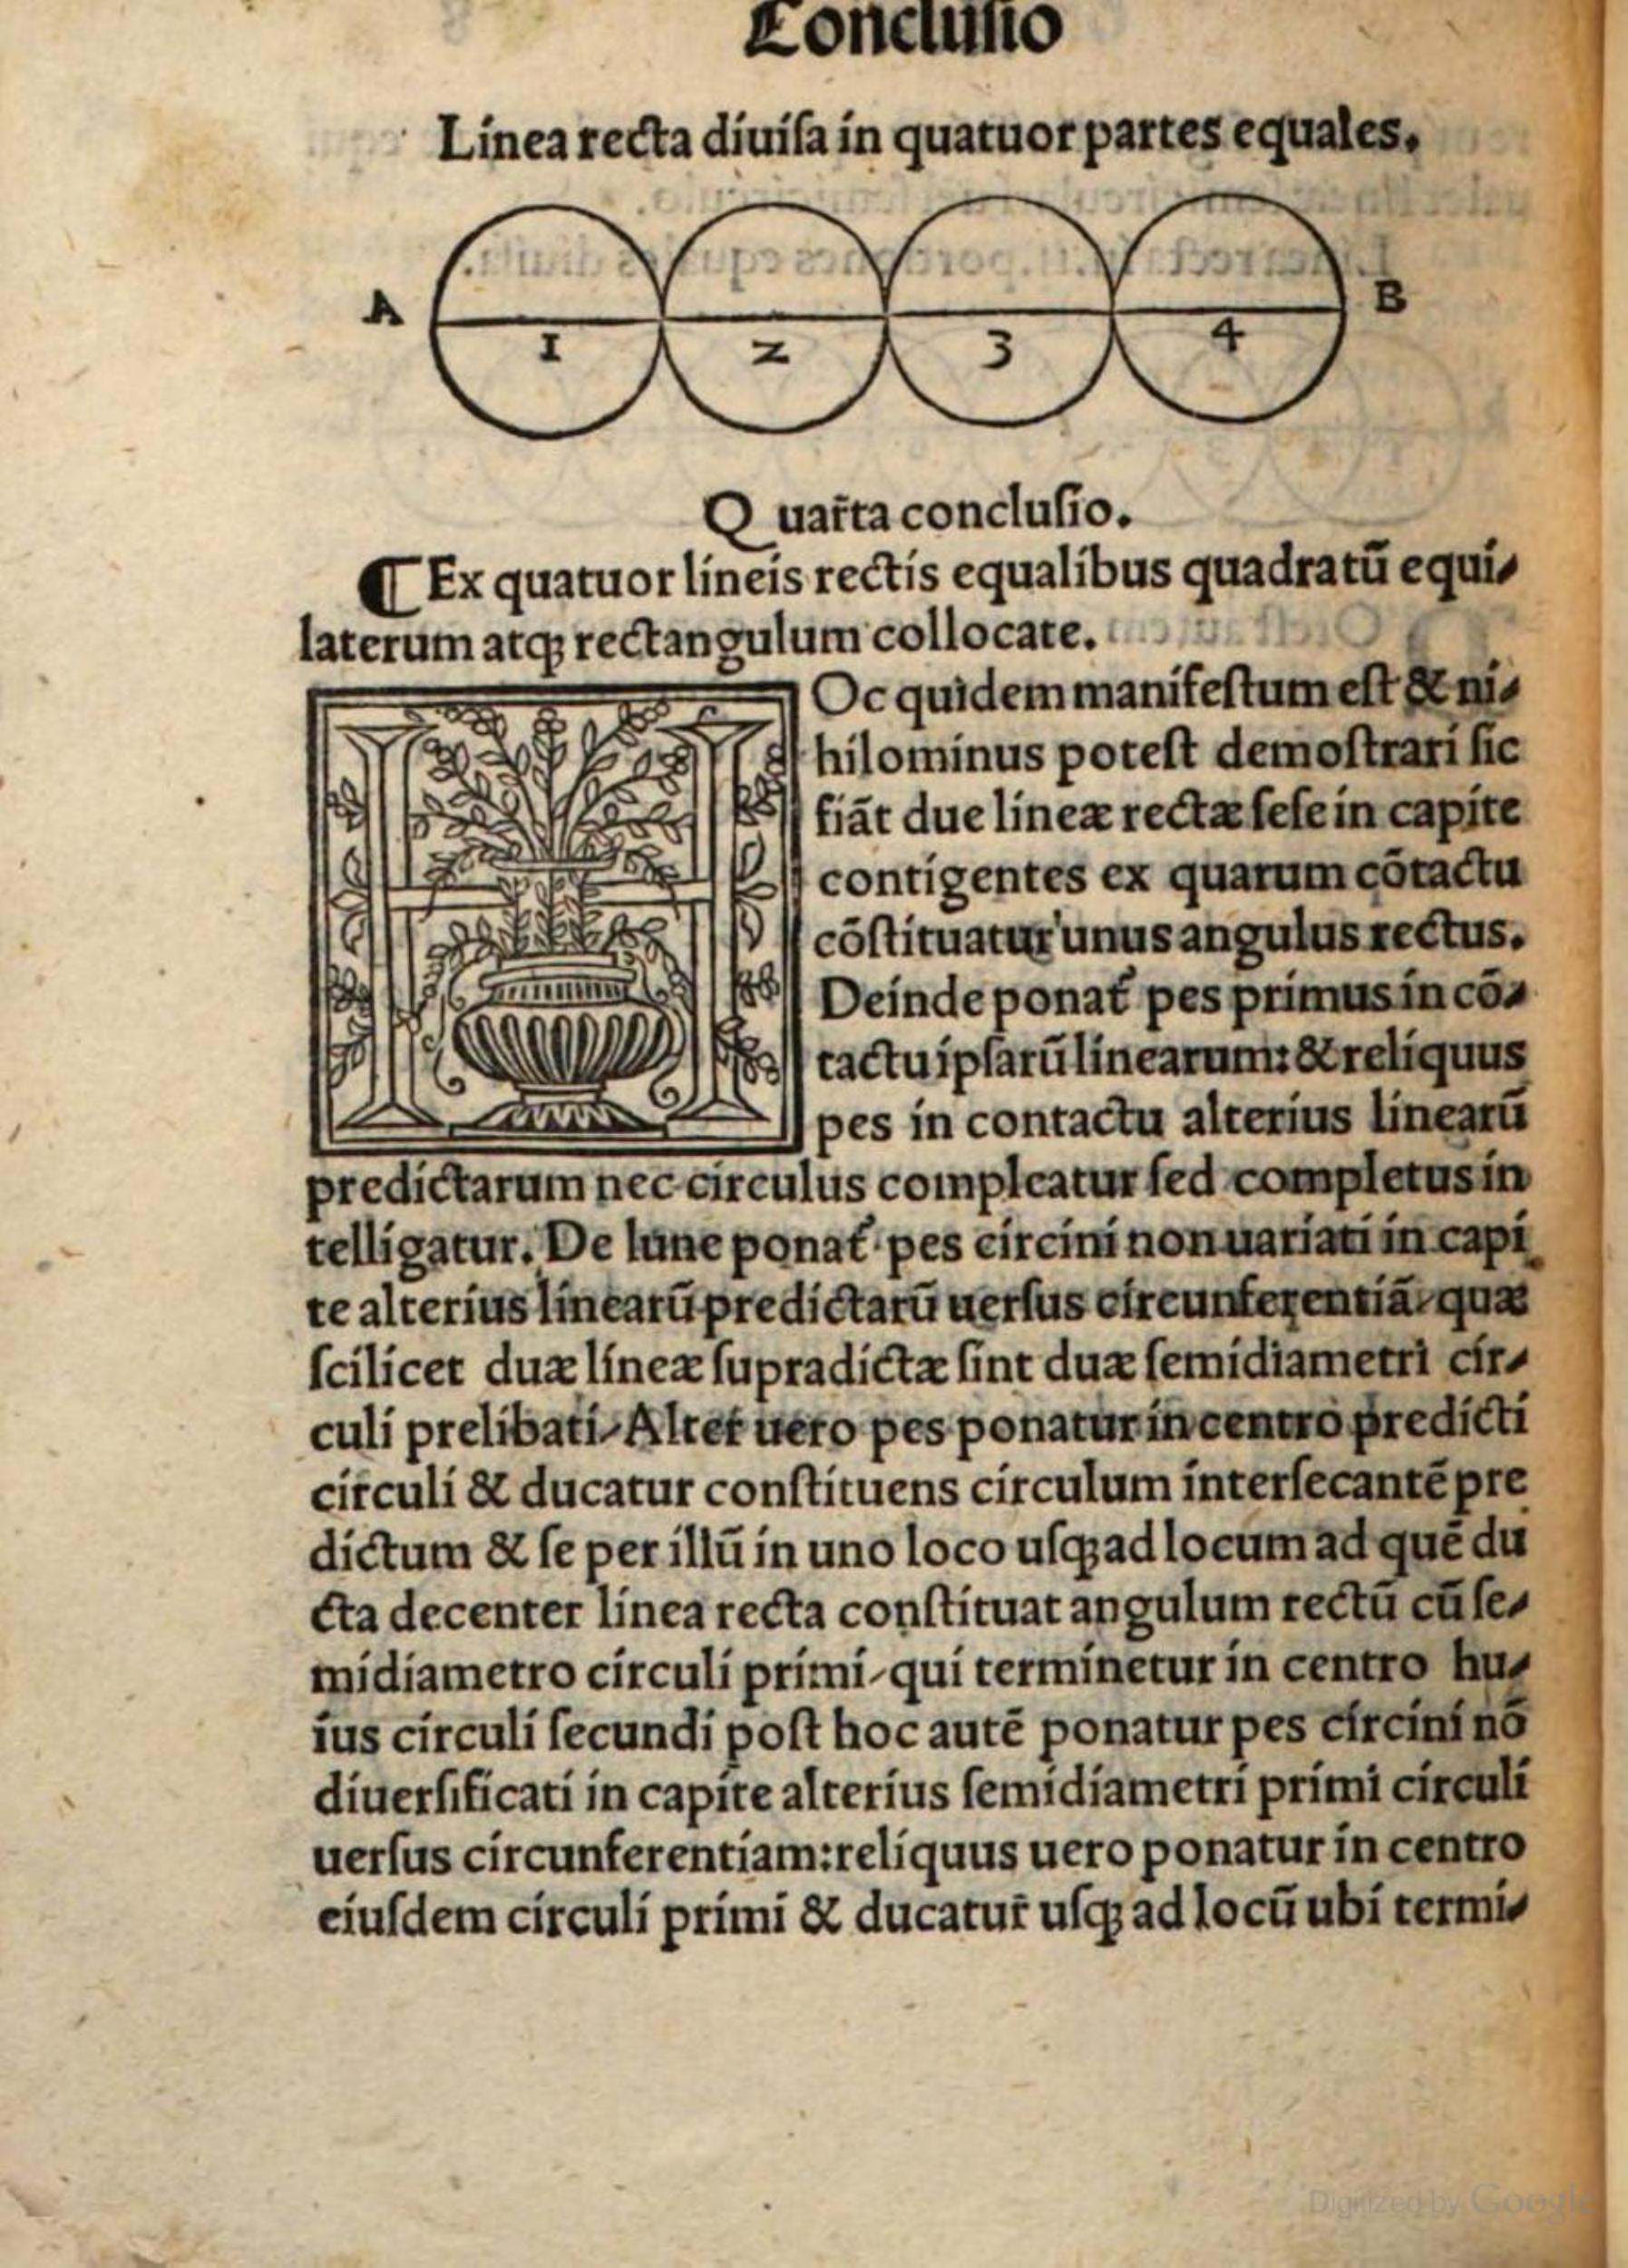 Concluſio
Linea recta diuiſa in quatuor partes equales.
A
B
1
2
3
4
Q uar̃ta concluſio.
¶Ex quatuor lineis rectis equalibus quadratũ equi-
laterum atqꝫ rectangulum collocate.
H
Oc quidem manifeſtum eſt & ni-
hilominus poteſt demoſtrari ſic
fiãt due lineæ rectæ ſeſe in capite
contigentes ex quarum cõtactu
cõſtituatur unus angulus rectus.
Deinde ponat̃ pes primus in cõ-
tactu ipſarũ linearum: & reliquus
pes in contactu alterius linearũ
predictarum nec circulus compleatur ſed completus in
telligatur. De lune ponat̃ pes circini non uariati in capi
te alterius linearũ predictarũ uerſus circunferentiã/quæ
ſcilicet duæ lineæ ſupradictæ ſint duæ ſemidiametri cir-
culi prelibati/Alter uero pes ponatur in centro predicti
circuli & ducatur conſtituens circulum interſecantẽ pre
dictum & ſe per illũ in uno loco uſqꝫ ad locum ad quẽ du
cta decenter linea recta conſtituat angulum rectũ cũ ſe-
midiametro circuli primi/qui terminetur in centro hu-
ius circuli ſecundi poſt hoc autẽ ponatur pes circini nõ
diuerſificati in capite alterius ſemidiametri primi circuli
uerſus circunferentiam:reliquus uero ponatur in centro
eiuſdem circuli primi & ducatur̃ uſqꝫ ad locũ ubi termi-
Digitized by Google